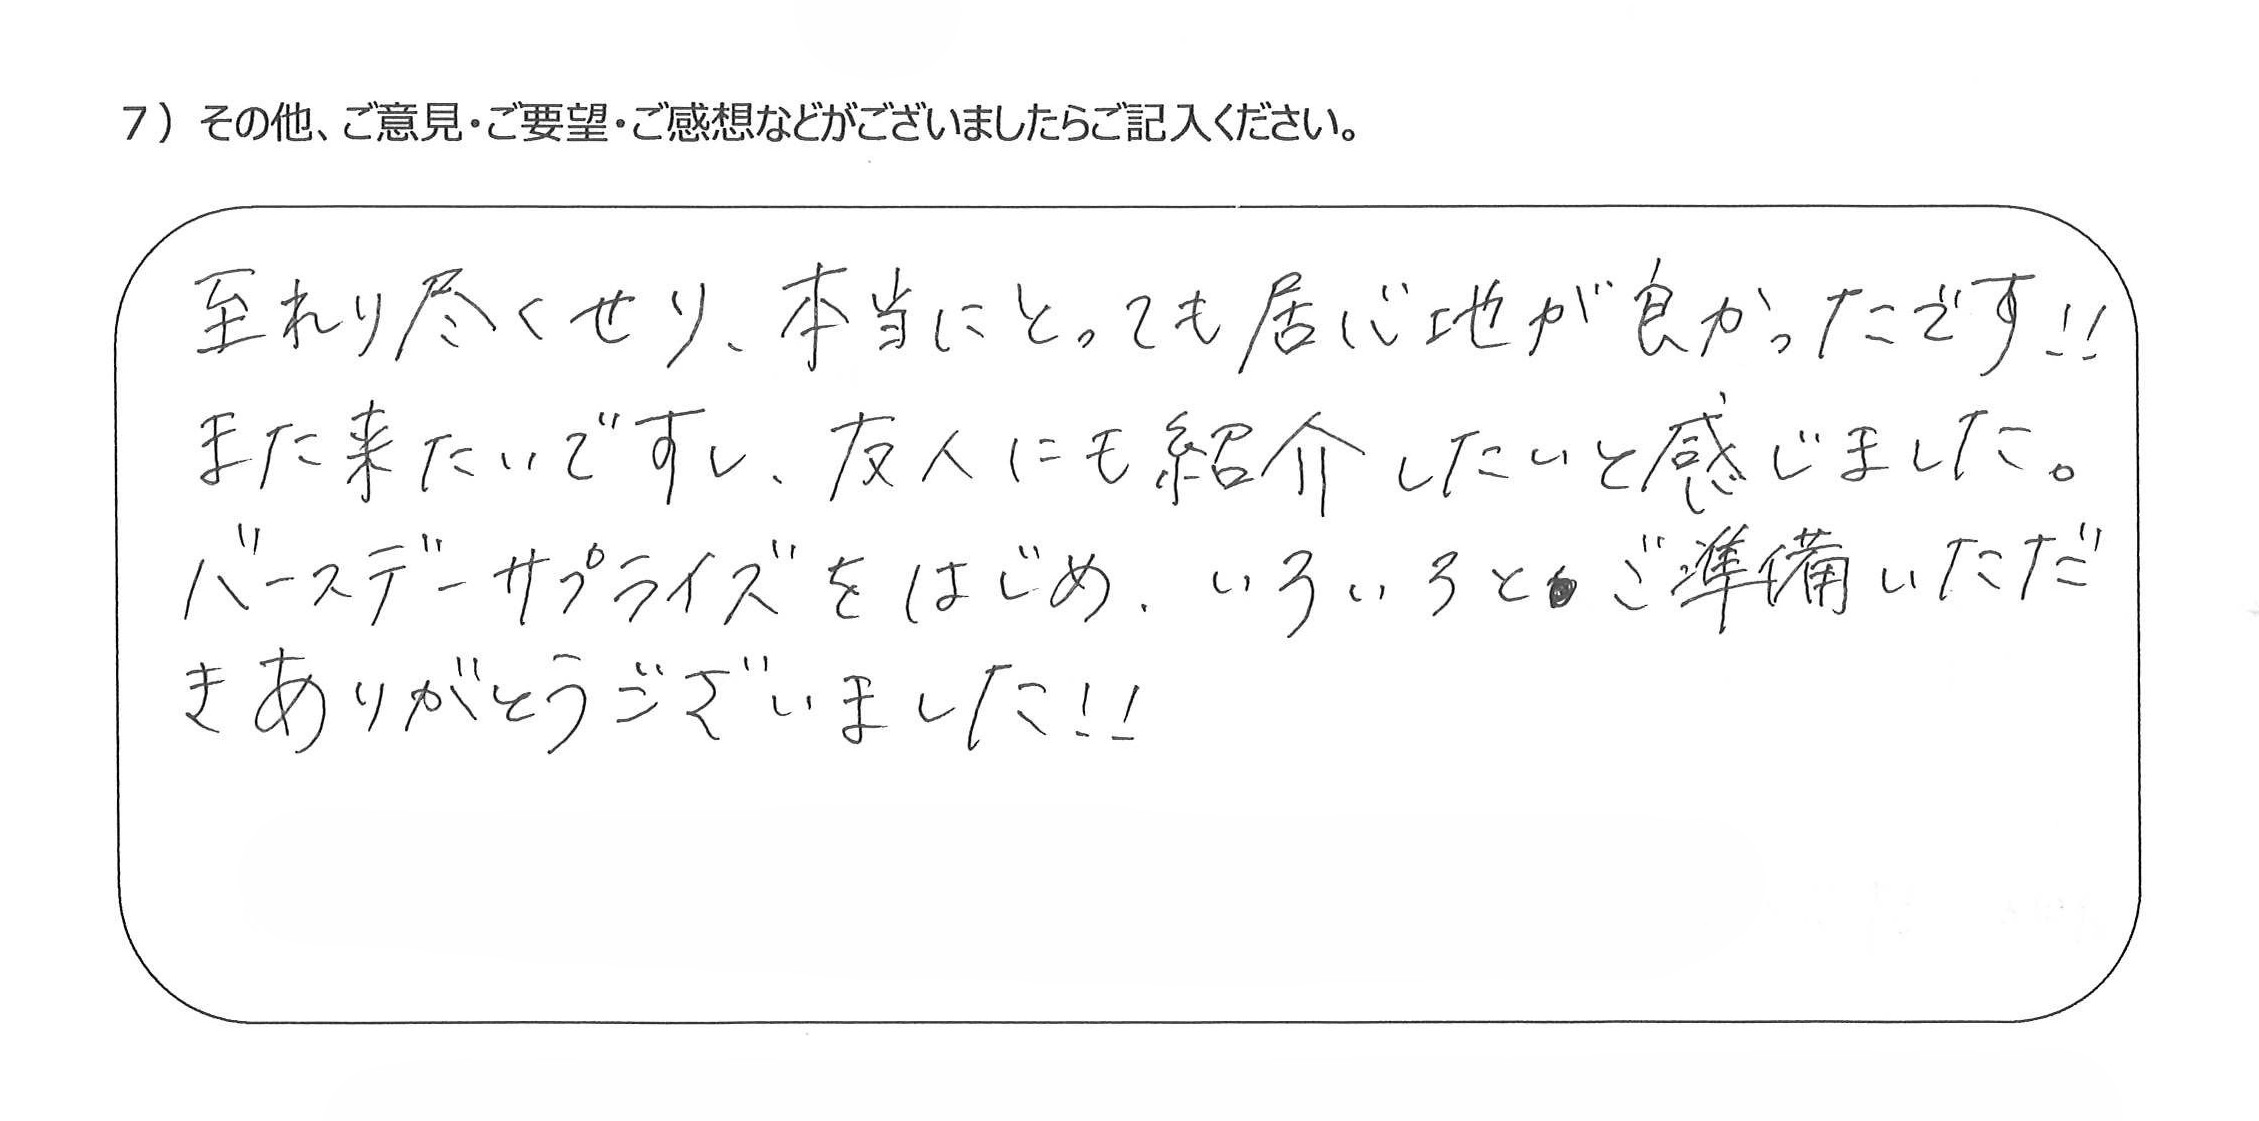 7）その他、ご意見・ご要望・ご感想などがございましたらご記入ください。
至れり尽くせり、本当にとっても居心地が良かったです!!
また来たいですし、友人にも紹介したいと感じました。
バースデーサプライズをはじめ、いろいろとご準備いただ
きありがとうございました!!